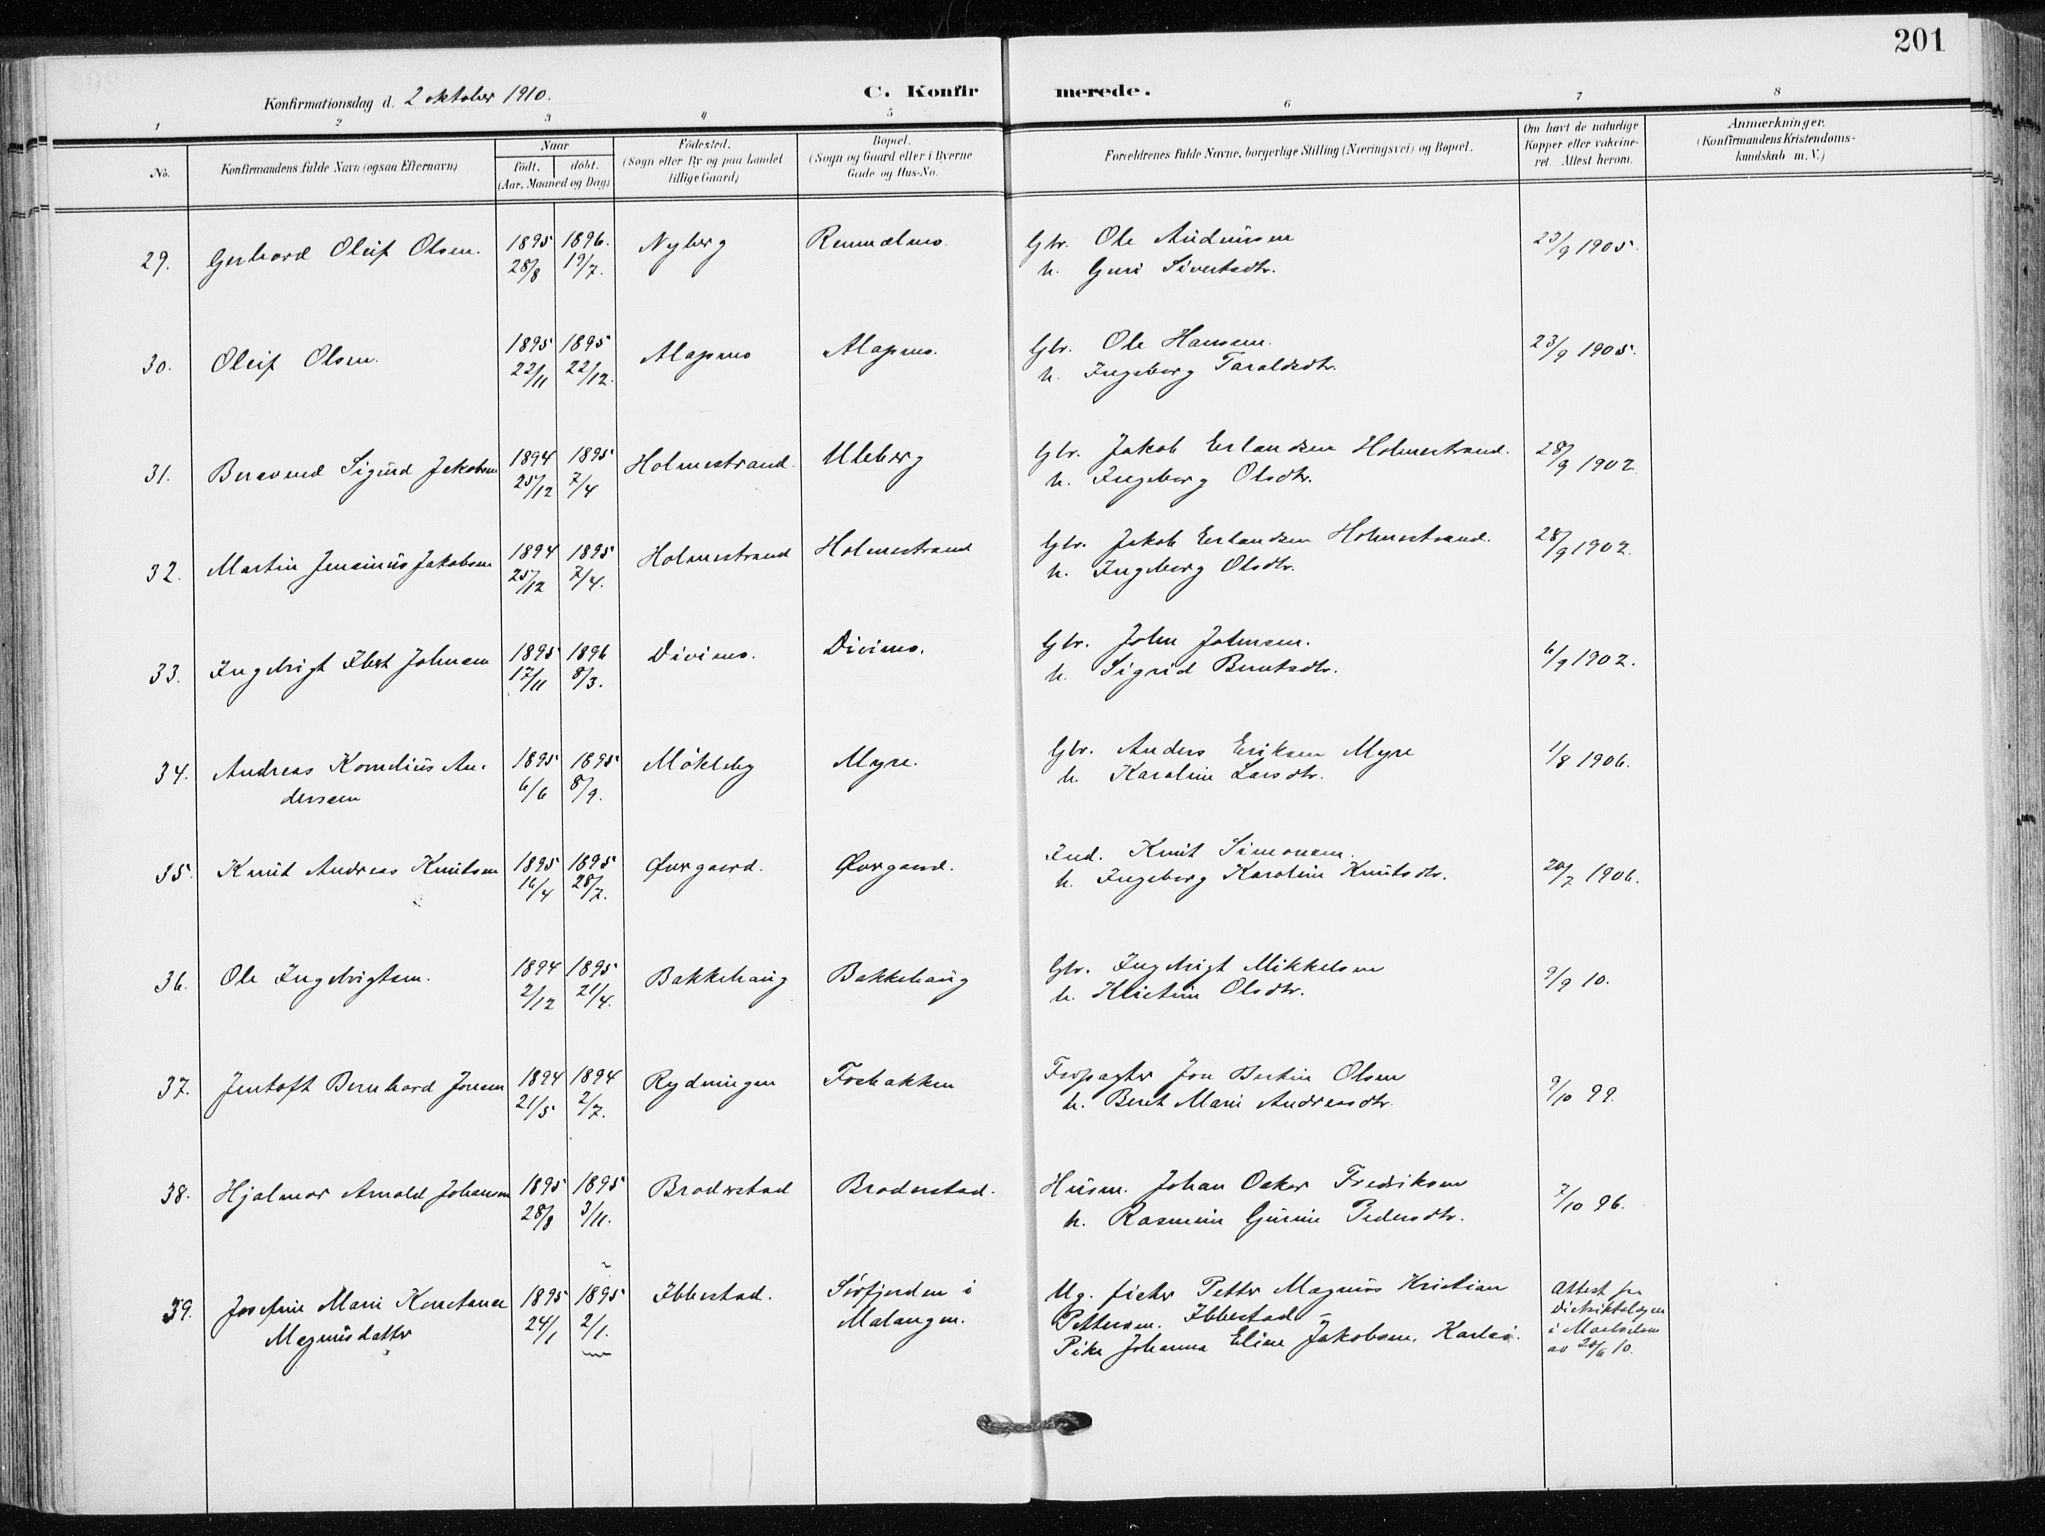 201
Konfirmationsdag d. 2 oktober 1910.
C. Konfirmerede.
1 2 3 4 5 6 7 8
No.
Konfirmandens fulde Navn (ogsaa Efternavn)
Naar
født. døbt.
(Aar, Maaned og Dag)
Fødested.
(Sogn eller By og paa Landet
tillige Gaard)
Bopæl.
(Sogn og Gaard eller i Byerne
Gade og Hus-No.
Forældrenes fulde Navne, borgerlige Stilling (Næringsvei) og Bopæl.
Om havt de naturlige
Kopper eller vakcine-
ret. Attest herom.
Anmærkninger.
(Konfirmandens Kristendoms-
kundskab m. V.)
29. Gerhard Oluf Olsen. 1895 28/8 1896. 19/7. Nyberg Rennælmo. Gbr. Ole Audunsen 23/9 1905.
h. Guri Sivertsdtr.
30. Oluf Olsen. 1895 22/11 1895 22/12. Alapmo Alapmo. Gbr. Ole Hansen. 23/9 1905.
h. Ingeborg Taraldsdtr.
31. Sigurd Jakobsen 1894 25/12 1895 7/4 Holmestrand. Uleberg Gbr. Jakob Erlandsen Holmestrand. 28/9 1902.
h. Ingeborg Olsdtr.
32. Martin Jensinius Jakobsen 1894 25/12 1895 7/4. Holmestrand Holmestrand Gbr. Jakob Erlandsen Holmestrand. 28/9 1902.
h. Ingeborg Olsdtr.
33. Ingebrigt Johnsen 1895 17/11 1896 8/3. Divimo. Divimo. Gbr. John Johnsen. 6/9 1902.
h. Sigrid Berntsdtr.
34. Andreas Kornelius An- 1895 6/6 1895 8/9. Mökleby Myre. Gbr. Anders Eriksen Myre 1/8 1906.
derssen h. Karoline Larsdtr.
35. Knut Andreas Knutsen 1895 16/4 1895 28/7. Øvrgaard. Øvrgaard. Ind. Knut Simonsen. 20/7 1906.
h. Ingeborg Karoline Knutsdtr.
36. Ole Ingebrigtsen. 1894 2/12 1895 21/4. Bakkehaug Bakkehaug Gbr. Ingebrigt Mikkelsen 9/9 10.
h. Kristine Olsdtr.
37. Jentoft Bernhard Jonsen 1894 21/5 1894 2/7. Rydningen Fosbakken Forpagter Jon Bertin Olsen 9/10 99.
h. Beret Marie Andreasdtr.
38. Hjalmar Arnold Johansen 1895 28/8 1895 3/11. Broderstad Broderstad. Husm. Johan Oskar Fredriksen 7/10 96.
h. Rasmine Gurine Pedersdtr.
39. Josefine Marie Konstanse 1895 24/1 1895 2/1. Ibbestad. Sörfjorden i Ug. fisker Petter Magnus Kristian Attest fra
Magnusdatter Malangen. Pettersen. Ibbestad – distriktslægen
Pike Johanna Eline Jakobsen, Karlsö. i Maalselven
av 20/6 10.